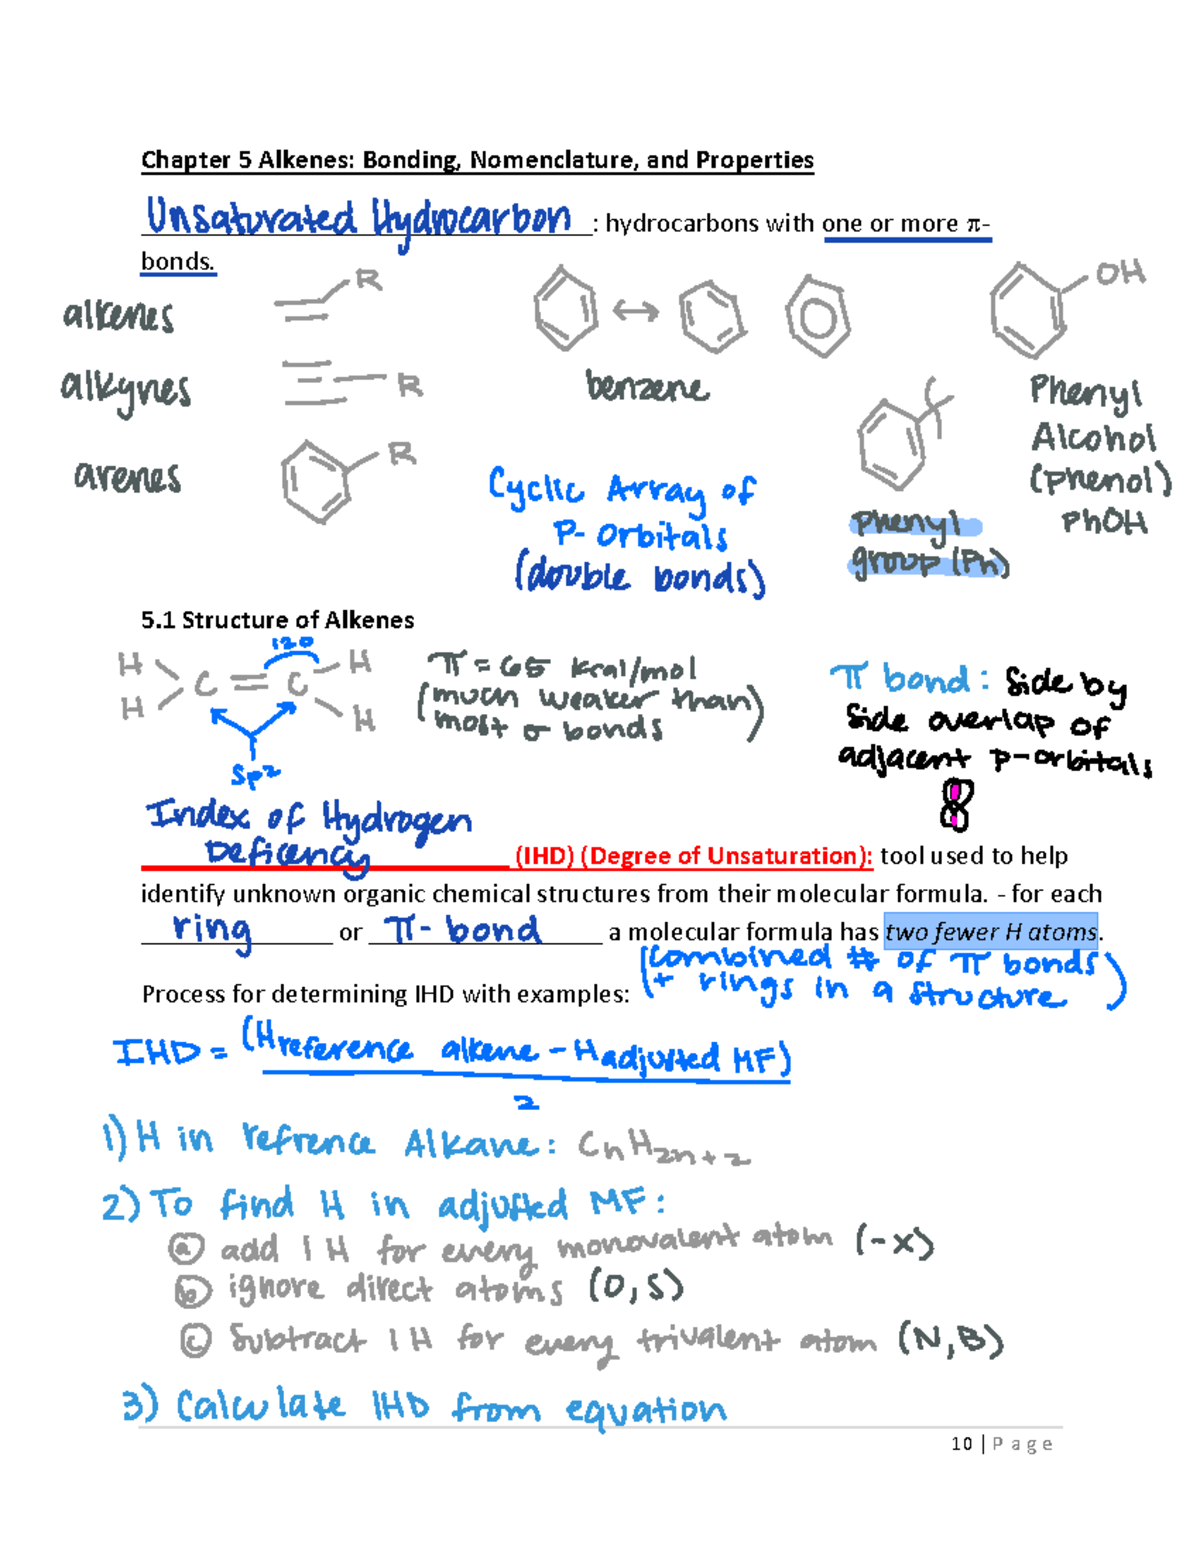 Chapter 5 Alkenes: Bonding, Nomenclature, and Properties
Unsaturated Hydrocarbon : hydrocarbons with one or more π-
bonds.
alkenes
R
alkynes
R
arenes
R
benzene
Cyclic Array of
P- orbitals
(double bonds)
phenyl
group (Ph)
OH
Phenyl
Alcohol
(phenol)
PhOH
5.1 Structure of Alkenes
120
H
H
C = C
H
H
sp²
π = 65 kcal/mol
(much weaker than)
most σ bonds
π bond: Side by
side overlap of
adjacent p-orbitals
Index of Hydrogen
Deficency (IHD) (Degree of Unsaturation): tool used to help
identify unknown organic chemical structures from their molecular formula. - for each
ring or π- bond a molecular formula has two fewer H atoms.
(combined # of π bonds)
+ rings in a structure
Process for determining IHD with examples:
IHD = (Hreference alkene - Hadjusted MF)
2
1) H in refrence Alkane: CnH2n+2
2) To find H in adjusted MF:
ⓐ add 1 H for every monovalent atom (-X)
ⓑ ignore direct atoms (O,S)
ⓒ Subtract 1 H for every trivalent atom (N,B)
3) Calculate IHD from equation
10 | P a g e